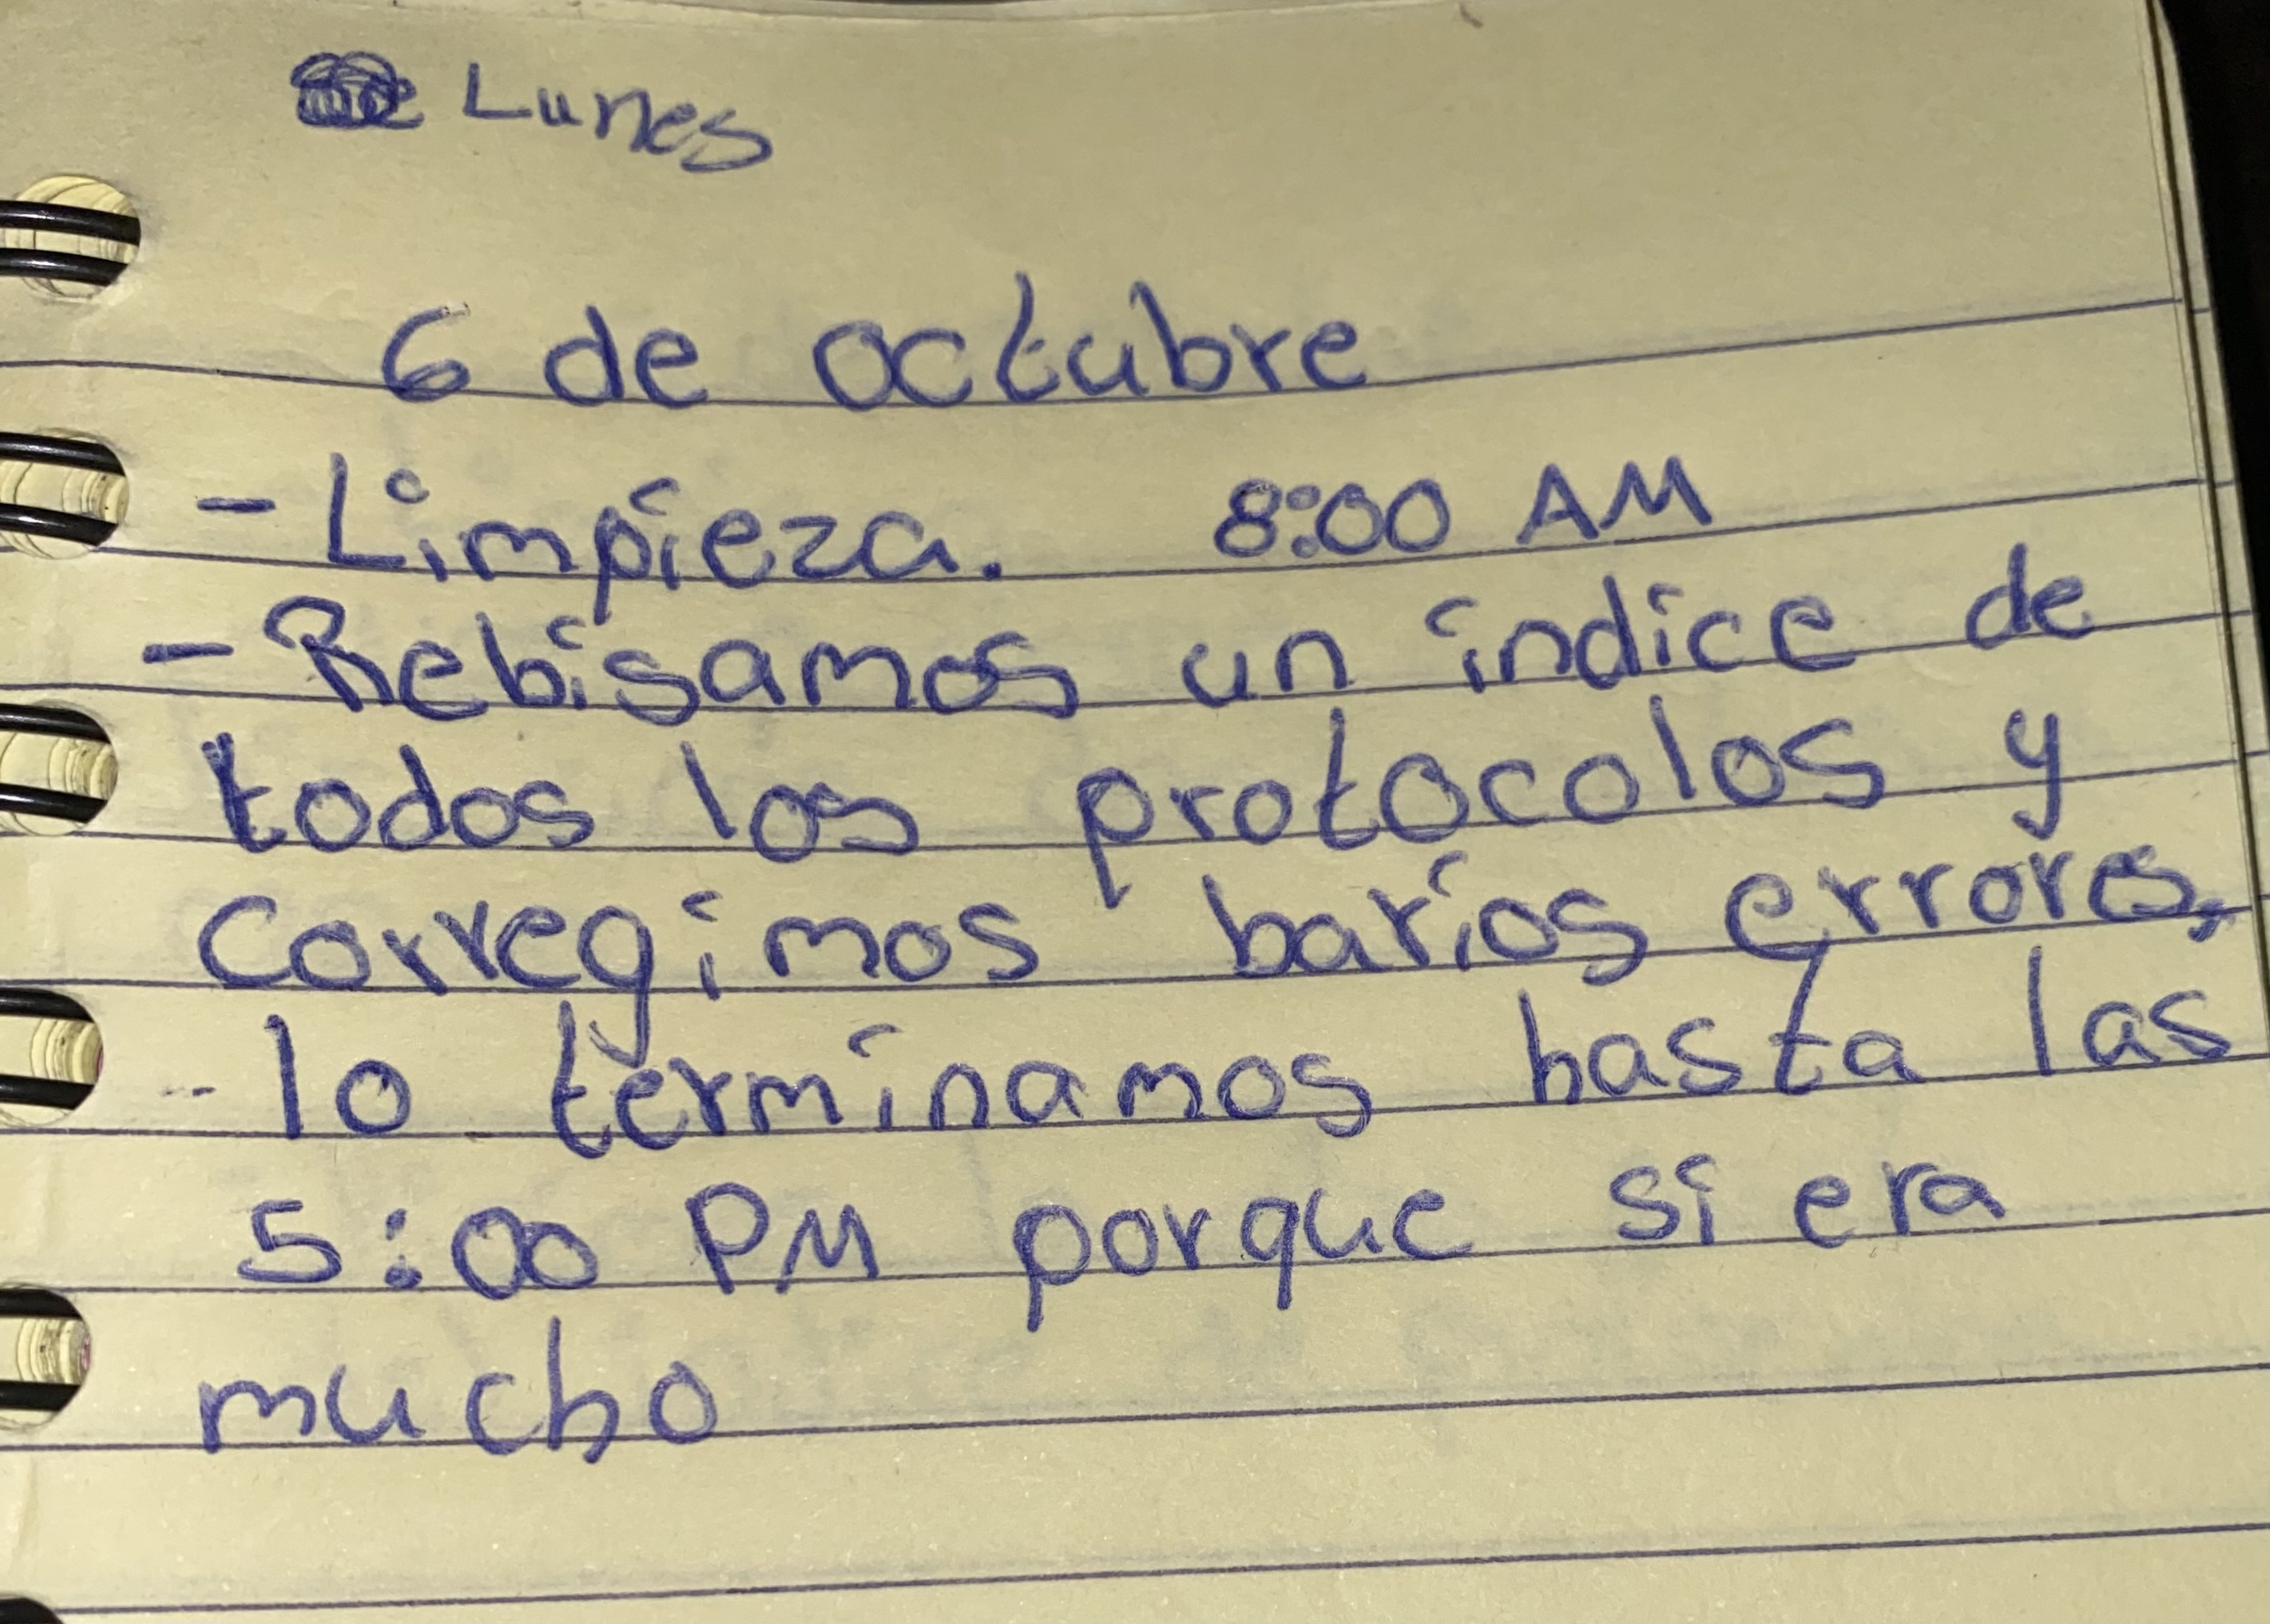 Lunes
6 de octubre
- Limpieza. 8:00 AM
- Rebisamos un indice de
todos los protocolos y
corregimos barios errores,
- lo terminamos hasta las
5:00 PM porque si era
mucho